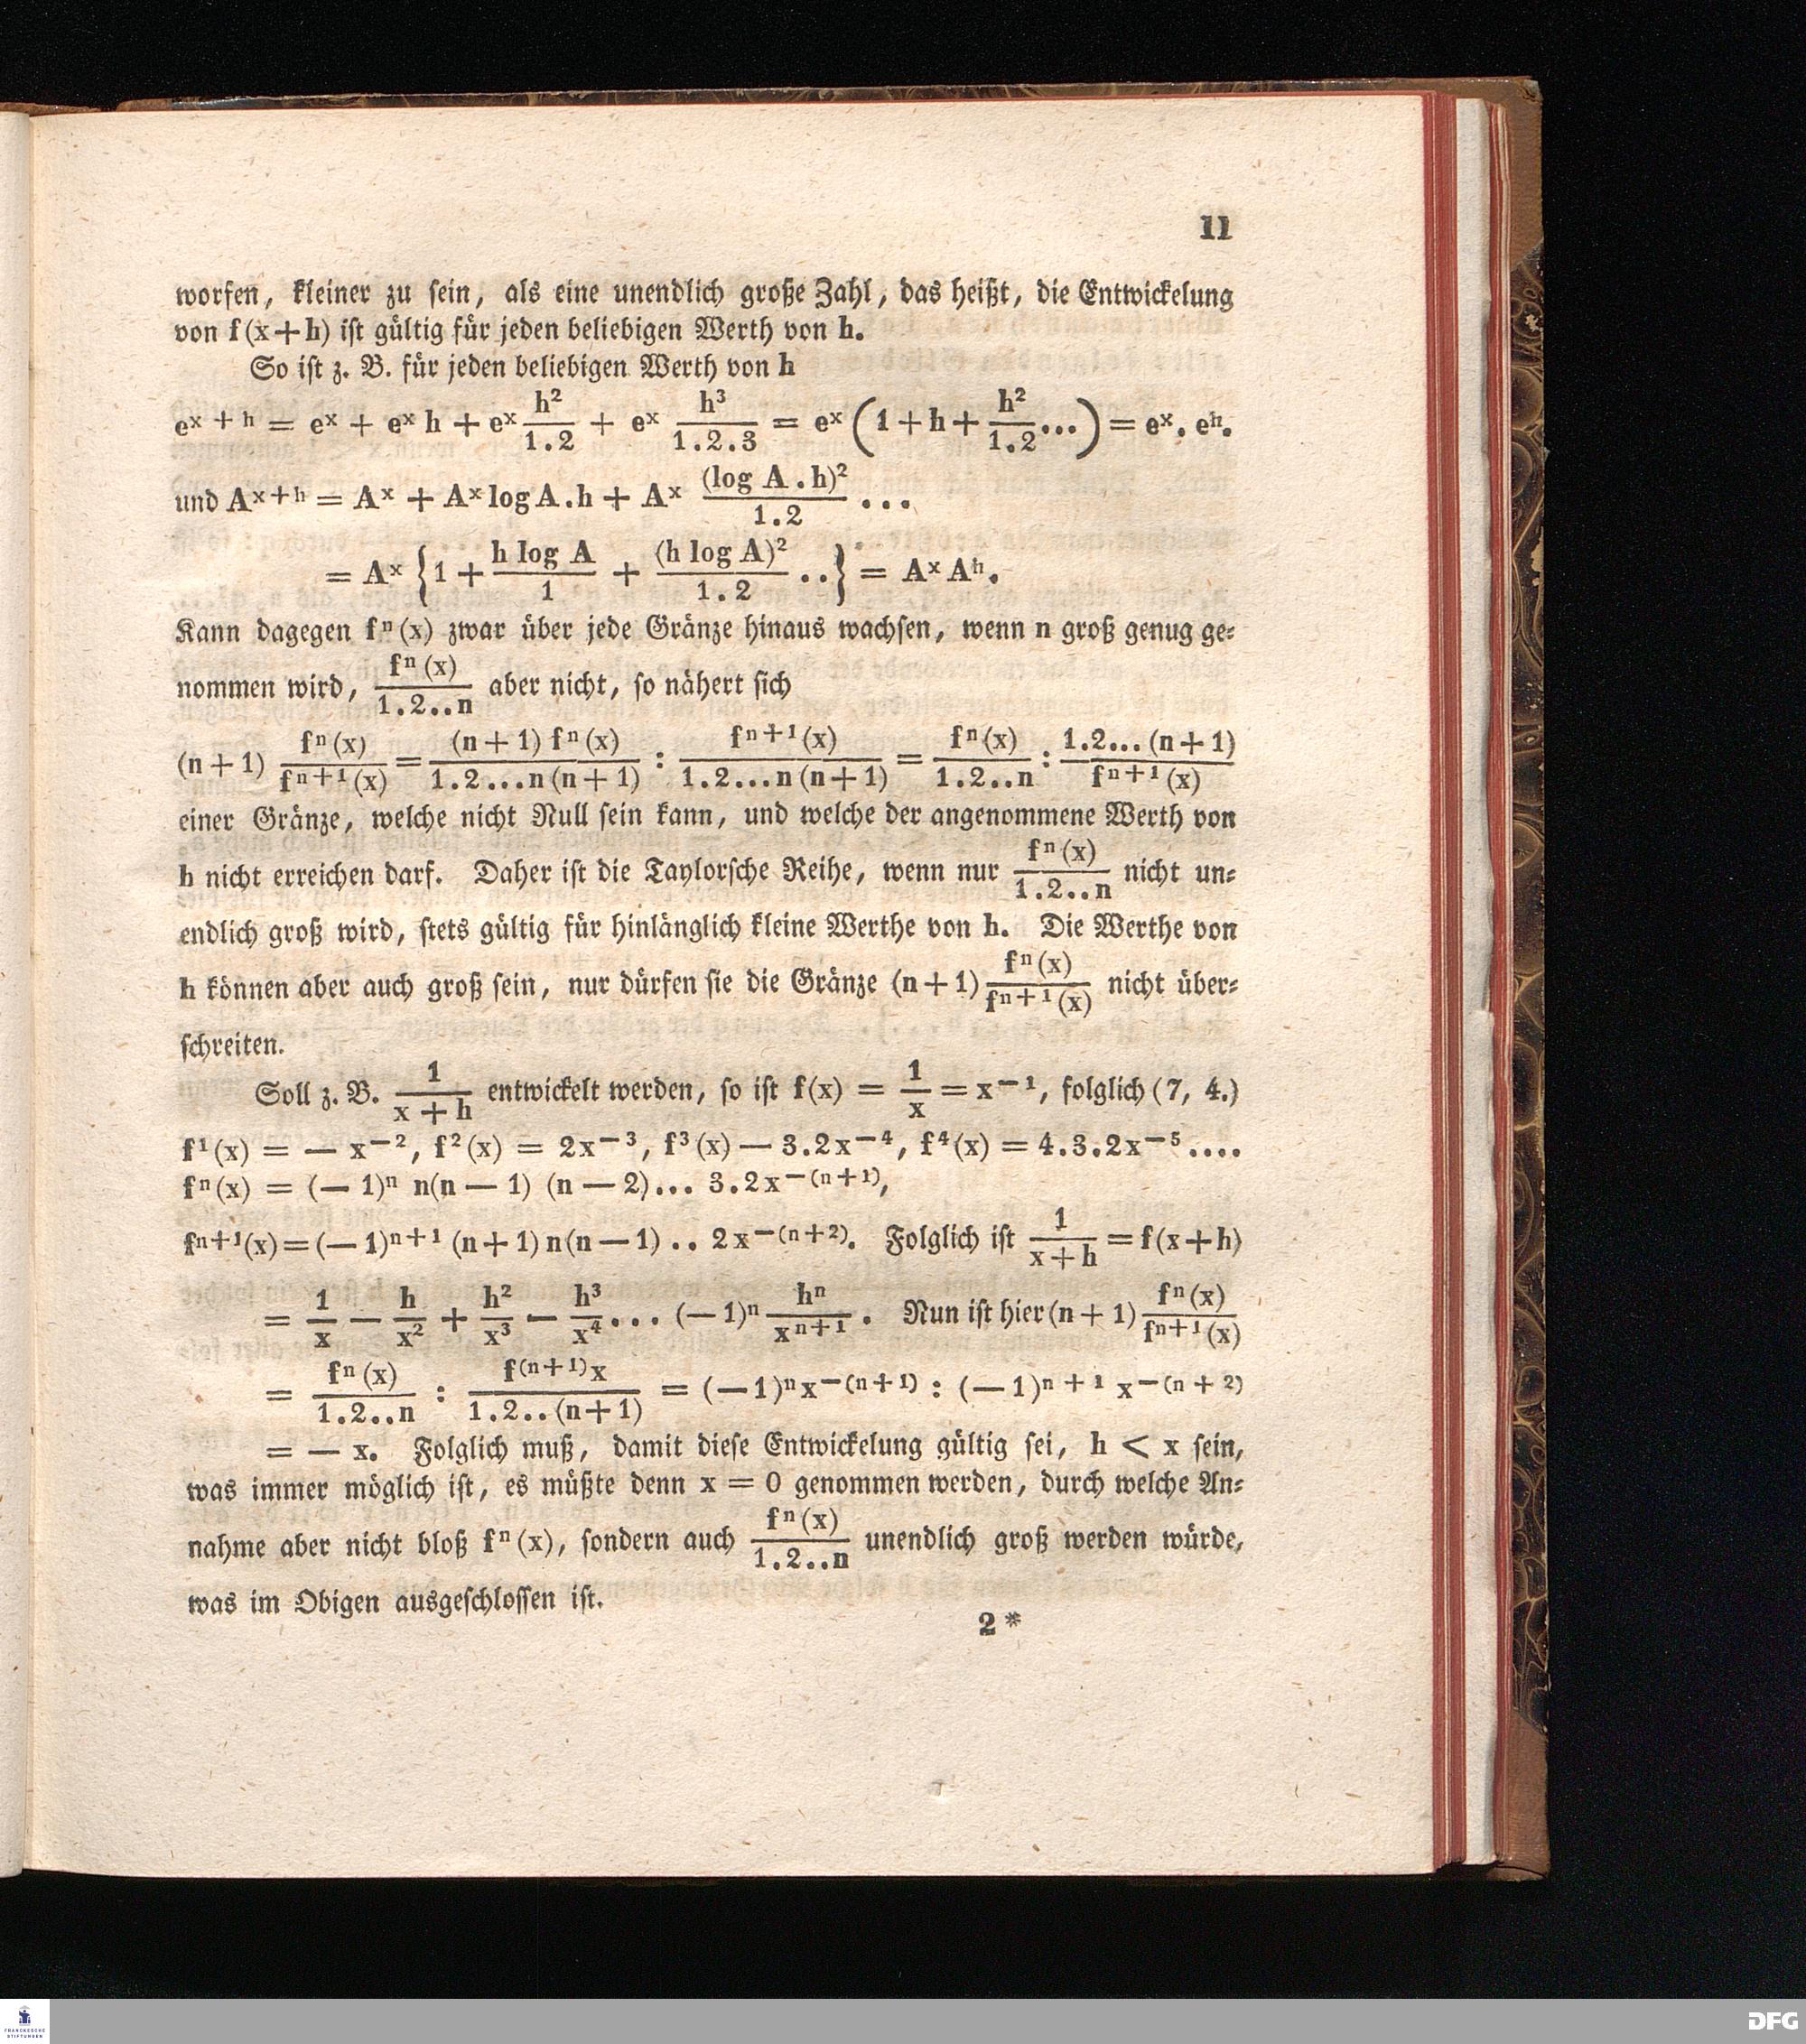 11
worfen, kleiner zu sein, als eine unendlich große Zahl, das heißt, die Entwickelung
von f(x+h) ist gültig für jeden beliebigen Werth von h.
So ist z. B. für jeden beliebigen Werth von h
e^{x+h} = e^x + e^x h + e^x \frac{h^2}{1.2} + e^x \frac{h^3}{1.2.3} = e^x (1+h+\frac{h^2}{1.2}...) = e^x. e^h.
und A^{x+h} = A^x + A^x log A.h + A^x \frac{(log A.h)^2}{1.2} ...
= A^x {1 + \frac{h log A}{1} + \frac{(h log A)^2}{1.2} ..} = A^x A^h.
Kann dagegen f^n(x) zwar über jede Gränze hinaus wachsen, wenn n groß genug ge-
nommen wird, \frac{f^n(x)}{1.2..n} aber nicht, so nähert sich
(n+1) \frac{f^n(x)}{f^{n+1}(x)} = \frac{(n+1) f^n(x)}{1.2...n(n+1)} : \frac{f^{n+1}(x)}{1.2...n(n+1)} = \frac{f^n(x)}{1.2..n} : \frac{1.2...(n+1)}{f^{n+1}(x)}
einer Gränze, welche nicht Null sein kann, und welche der angenommene Werth von
h nicht erreichen darf. Daher ist die Taylorsche Reihe, wenn nur \frac{f^n(x)}{1.2..n} nicht un-
endlich groß wird, stets gültig für hinlänglich kleine Werthe von h. Die Werthe von
h können aber auch groß sein, nur dürfen sie die Gränze (n+1) \frac{f^n(x)}{f^{n+1}(x)} nicht über-
schreiten.
Soll z. B. \frac{1}{x+h} entwickelt werden, so ist f(x) = \frac{1}{x} = x^{-1}, folglich (7, 4.)
f^1(x) = — x^{-2}, f^2(x) = 2x^{-3}, f^3(x) — 3.2x^{-4}, f^4(x) = 4.3.2x^{-5}....
f^n(x) = (—1)^n n(n—1) (n—2)... 3.2x^{-(n+1)},
f^{n+1}(x) = (—1)^{n+1} (n+1)n(n—1) .. 2x^{-(n+2)}. Folglich ist \frac{1}{x+h} = f(x+h)
= \frac{1}{x} — \frac{h}{x^2} + \frac{h^2}{x^3} — \frac{h^3}{x^4}... (—1)^n \frac{h^n}{x^{n+1}}. Nun ist hier (n+1) \frac{f^n(x)}{f^{n+1}(x)}
= \frac{f^n(x)}{1.2..n} : \frac{f^{(n+1)}x}{1.2..(n+1)} = (—1)^n x^{-(n+1)} : (—1)^{n+1} x^{-(n+2)}
= — x. Folglich muß, damit diese Entwickelung gültig sei, h < x sein,
was immer möglich ist, es müßte denn x = 0 genommen werden, durch welche An-
nahme aber nicht bloß f^n(x), sondern auch \frac{f^n(x)}{1.2..n} unendlich groß werden würde,
was im Obigen ausgeschlossen ist.
2*
FRANCKESCHE
STIFTUNGEN
DFG